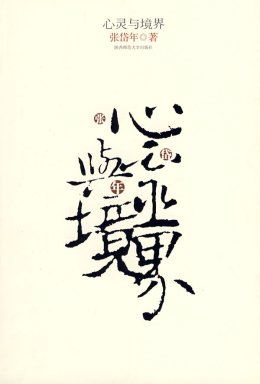 心灵与境界
张岱年◎著
陕西师范大学出版社
心灵
與境界
张岱年